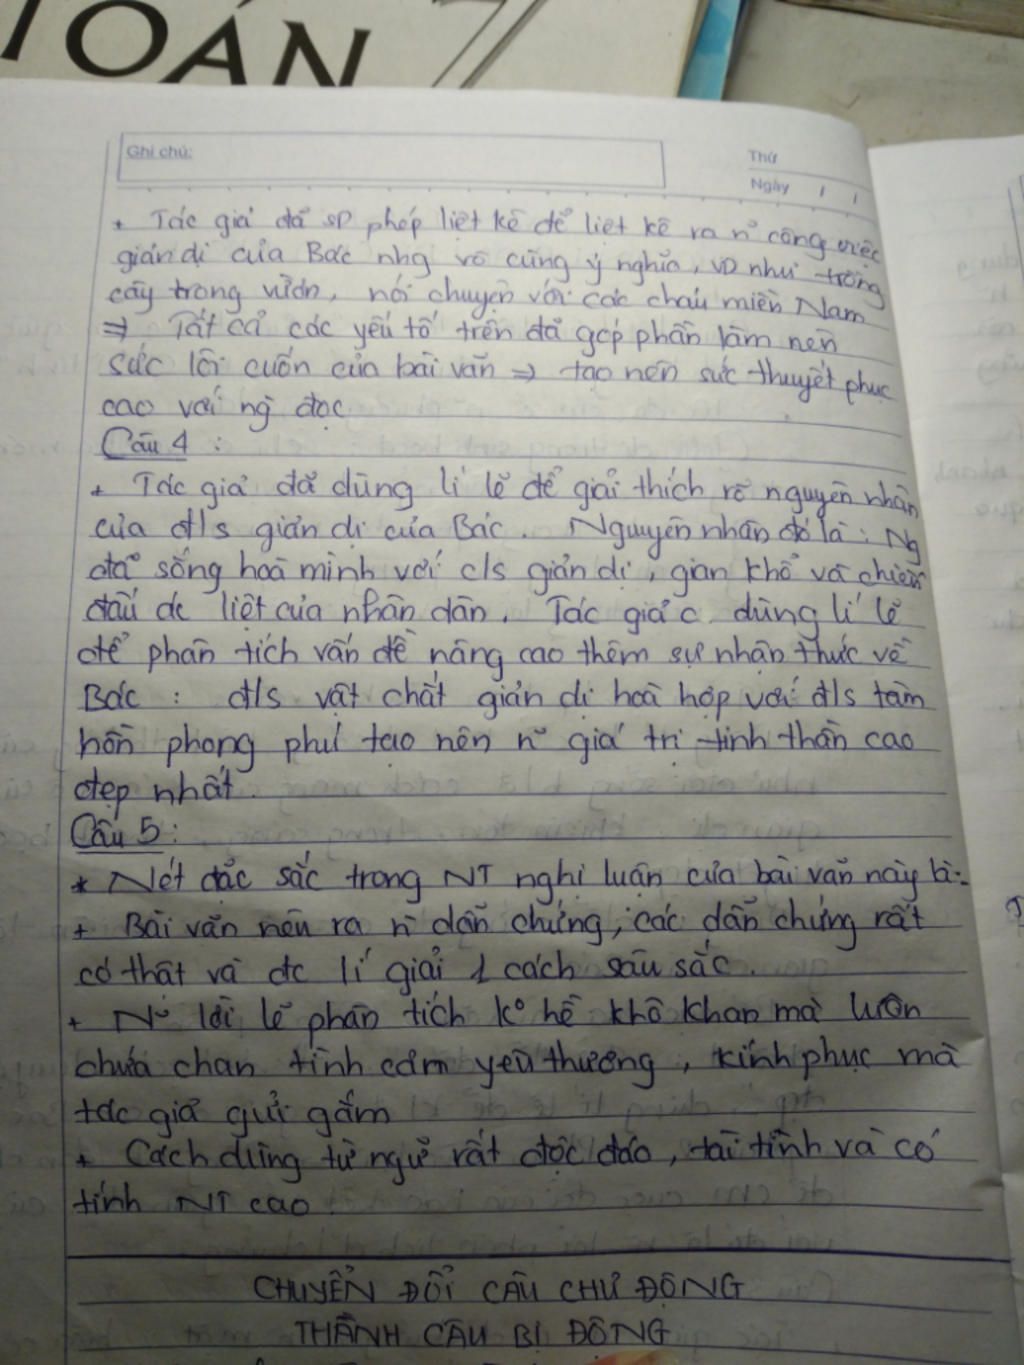 TOÁN 7
Ghi chú:
Thứ
Ngày / /
+ Tác giả đã SD phép liệt kê để liệt kê ra n~ công việc
giản dị của Bác nhg vô cùng ý nghĩa, VD như trồng
cây trong vườn, nói chuyện với các cháu miền Nam
⇒ Tất cả các yếu tố trên đã góp phần làm nên
sức lôi cuốn của bài văn ⇒ tạo nên sức thuyết phục
cao với ng` đọc
Câu 4 :
+ Tác giả đã dùng lí lẽ để giải thích rõ nguyên nhân
của đ/s giản dị của Bác. Nguyên nhân đó là : Ng
đã sống hoà mình với c/s giản dị, gian khổ và chiến
đấu ác liệt của nhân dân. Tác giả c. dùng lí lẽ
để phân tích vấn đề nâng cao thêm sự nhận thức về
Bác : đ/s vật chất giản dị hoà hợp với đ/s tâm
hồn phong phú tạo nên n~ giá trị tinh thần cao
đẹp nhất.
Câu 5 :
* Nét đặc sắc trong NT nghị luận của bài văn này là:
+ Bài văn nêu ra n` dẫn chứng, các dẫn chứng rất
có thật và đc lí giải 1 cách sâu sắc.
+ N~ lời lẽ phân tích k° hề khô khan mà luôn
chứa chan tình cảm yêu thương, kính phục mà
tác giả gửi gắm
+ Cách dùng từ ngữ rất độc đáo, tài tình và có
tính NT cao
CHUYỂN ĐỔI CÂU CHỦ ĐỘNG
THÀNH CÂU BỊ ĐỘNG